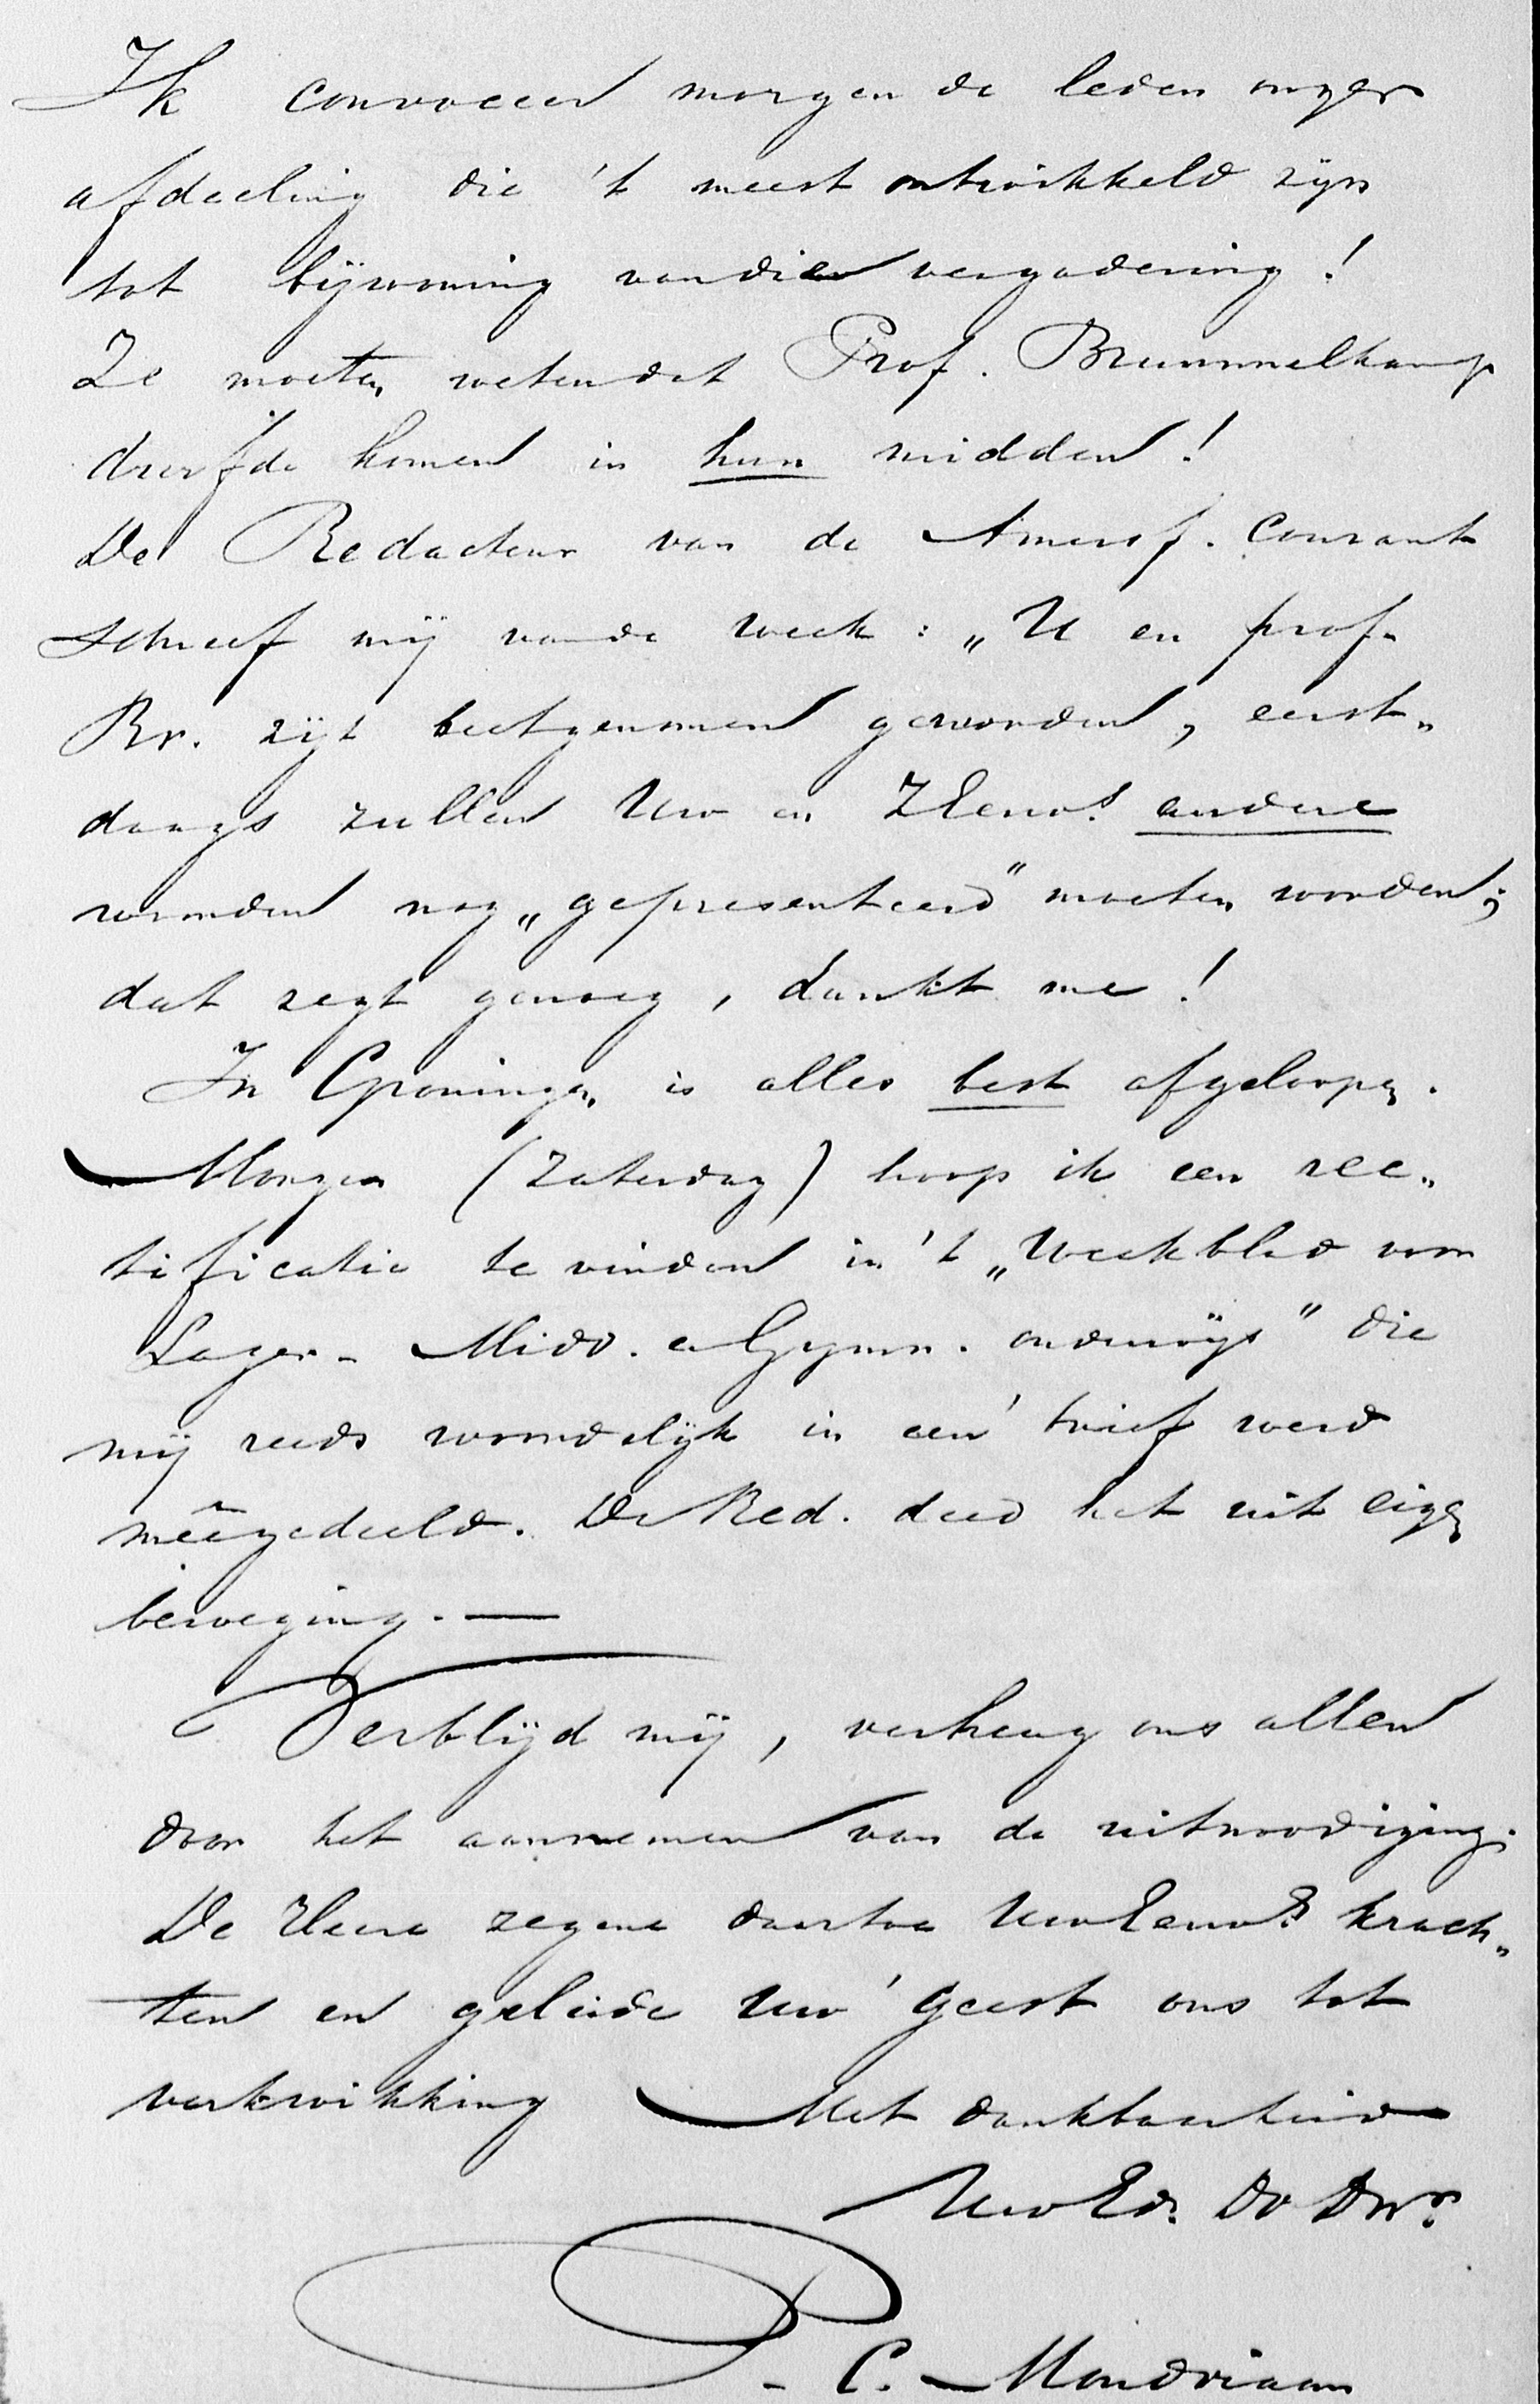 Ik convoceer morgen de leden onzer
afdeeling die 't meest ontwikkeld zijn
tot bijwoning van die vergadering!
Ze moeten weten dat Prof. Brummelkamp
durfde komen in hun midden!
De Redacteur van de Amersf. Courant
schreef mij van de week: „U en prof.
Br. zijt beetgenomen geworden, eerst„
daags zullen Uw en ZEerw. andere
woorden nog „gepresenteerd" moeten worden;
dat zegt genoeg, dunkt me!
In Groningen is alles best afgeloopen.
Morgen (Zaterdag) hoop ik een rec„
tificatie te vinden in 't „Weekblad voor
Lager- Midd. en Gymn. onderwijs" die
mij reeds woordelijk in een brief werd
meêgedeeld. De Red. deed het uit eigen
beweging. —
Verblijd mij, verheug ons allen
door het aannemen van de uitnoodiging.
De Heere zegene daartoe UwEerw. krach„
ten en geleide Uw geest ons tot
verkwikking Met dankbaarheid
UwEd. Dv Dnr.
P. C. Mondriaan